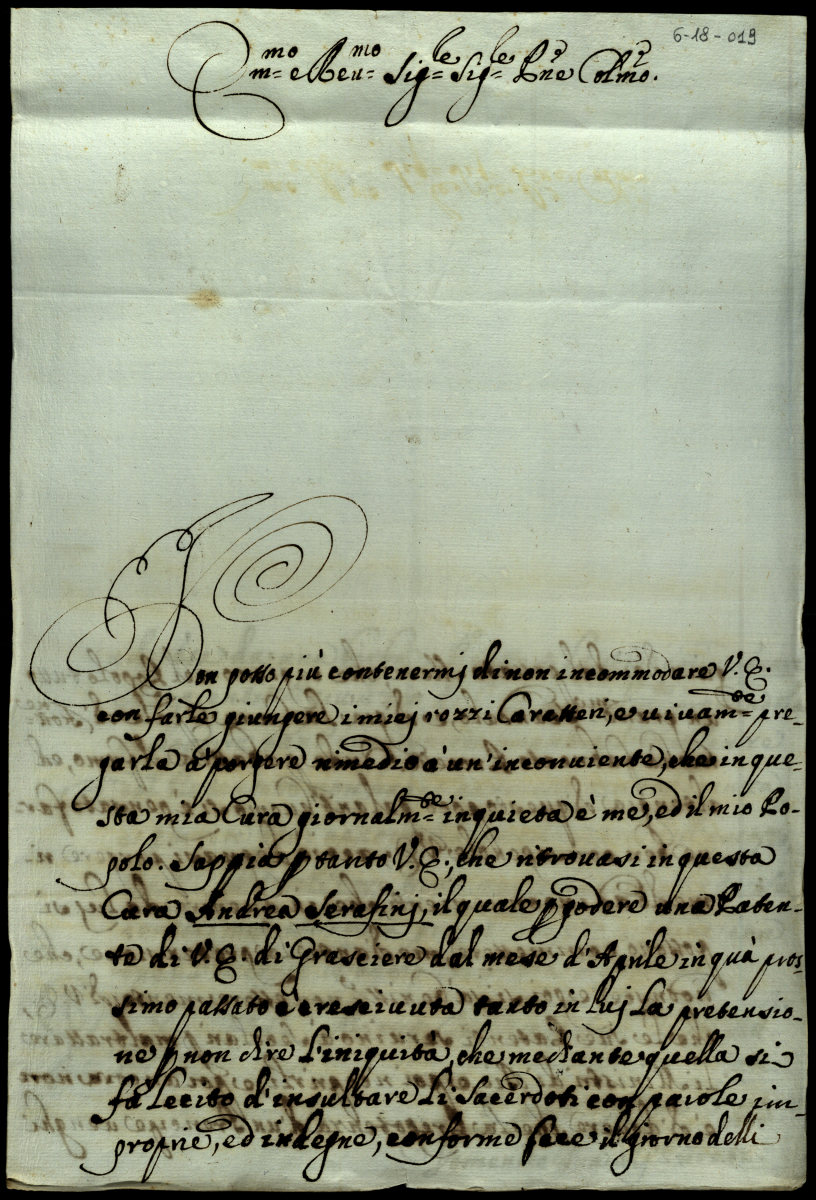 6-18-019
Emo e Reumo Sigle Sigle Pne Colmo.
Non posso più contenermj di non incommodare V.E.
con farle giungere i miej rozzi Caratteri, e uiuamte pre-
garla a' porgere rimedio a' un'inconuiente, che in que-
sta mia Cura giornalmte inquieta è me, ed il mio Po-
polo. Sappia p tanto V.E., che ritrouasi in questa
Cura Andrea Serafinj, il quale p godere una Paten-
te di V.E. di Grasciere dal mese d'Aprile in quà pros-
simo passato è cresciuuta tanto in luj la pretensio-
ne p non dire l'iniquità, che mediante quella si
fà lecito d'insultare li Sacerdoti con parole im-
proprie, ed indegne, conforme fece il giorno delli